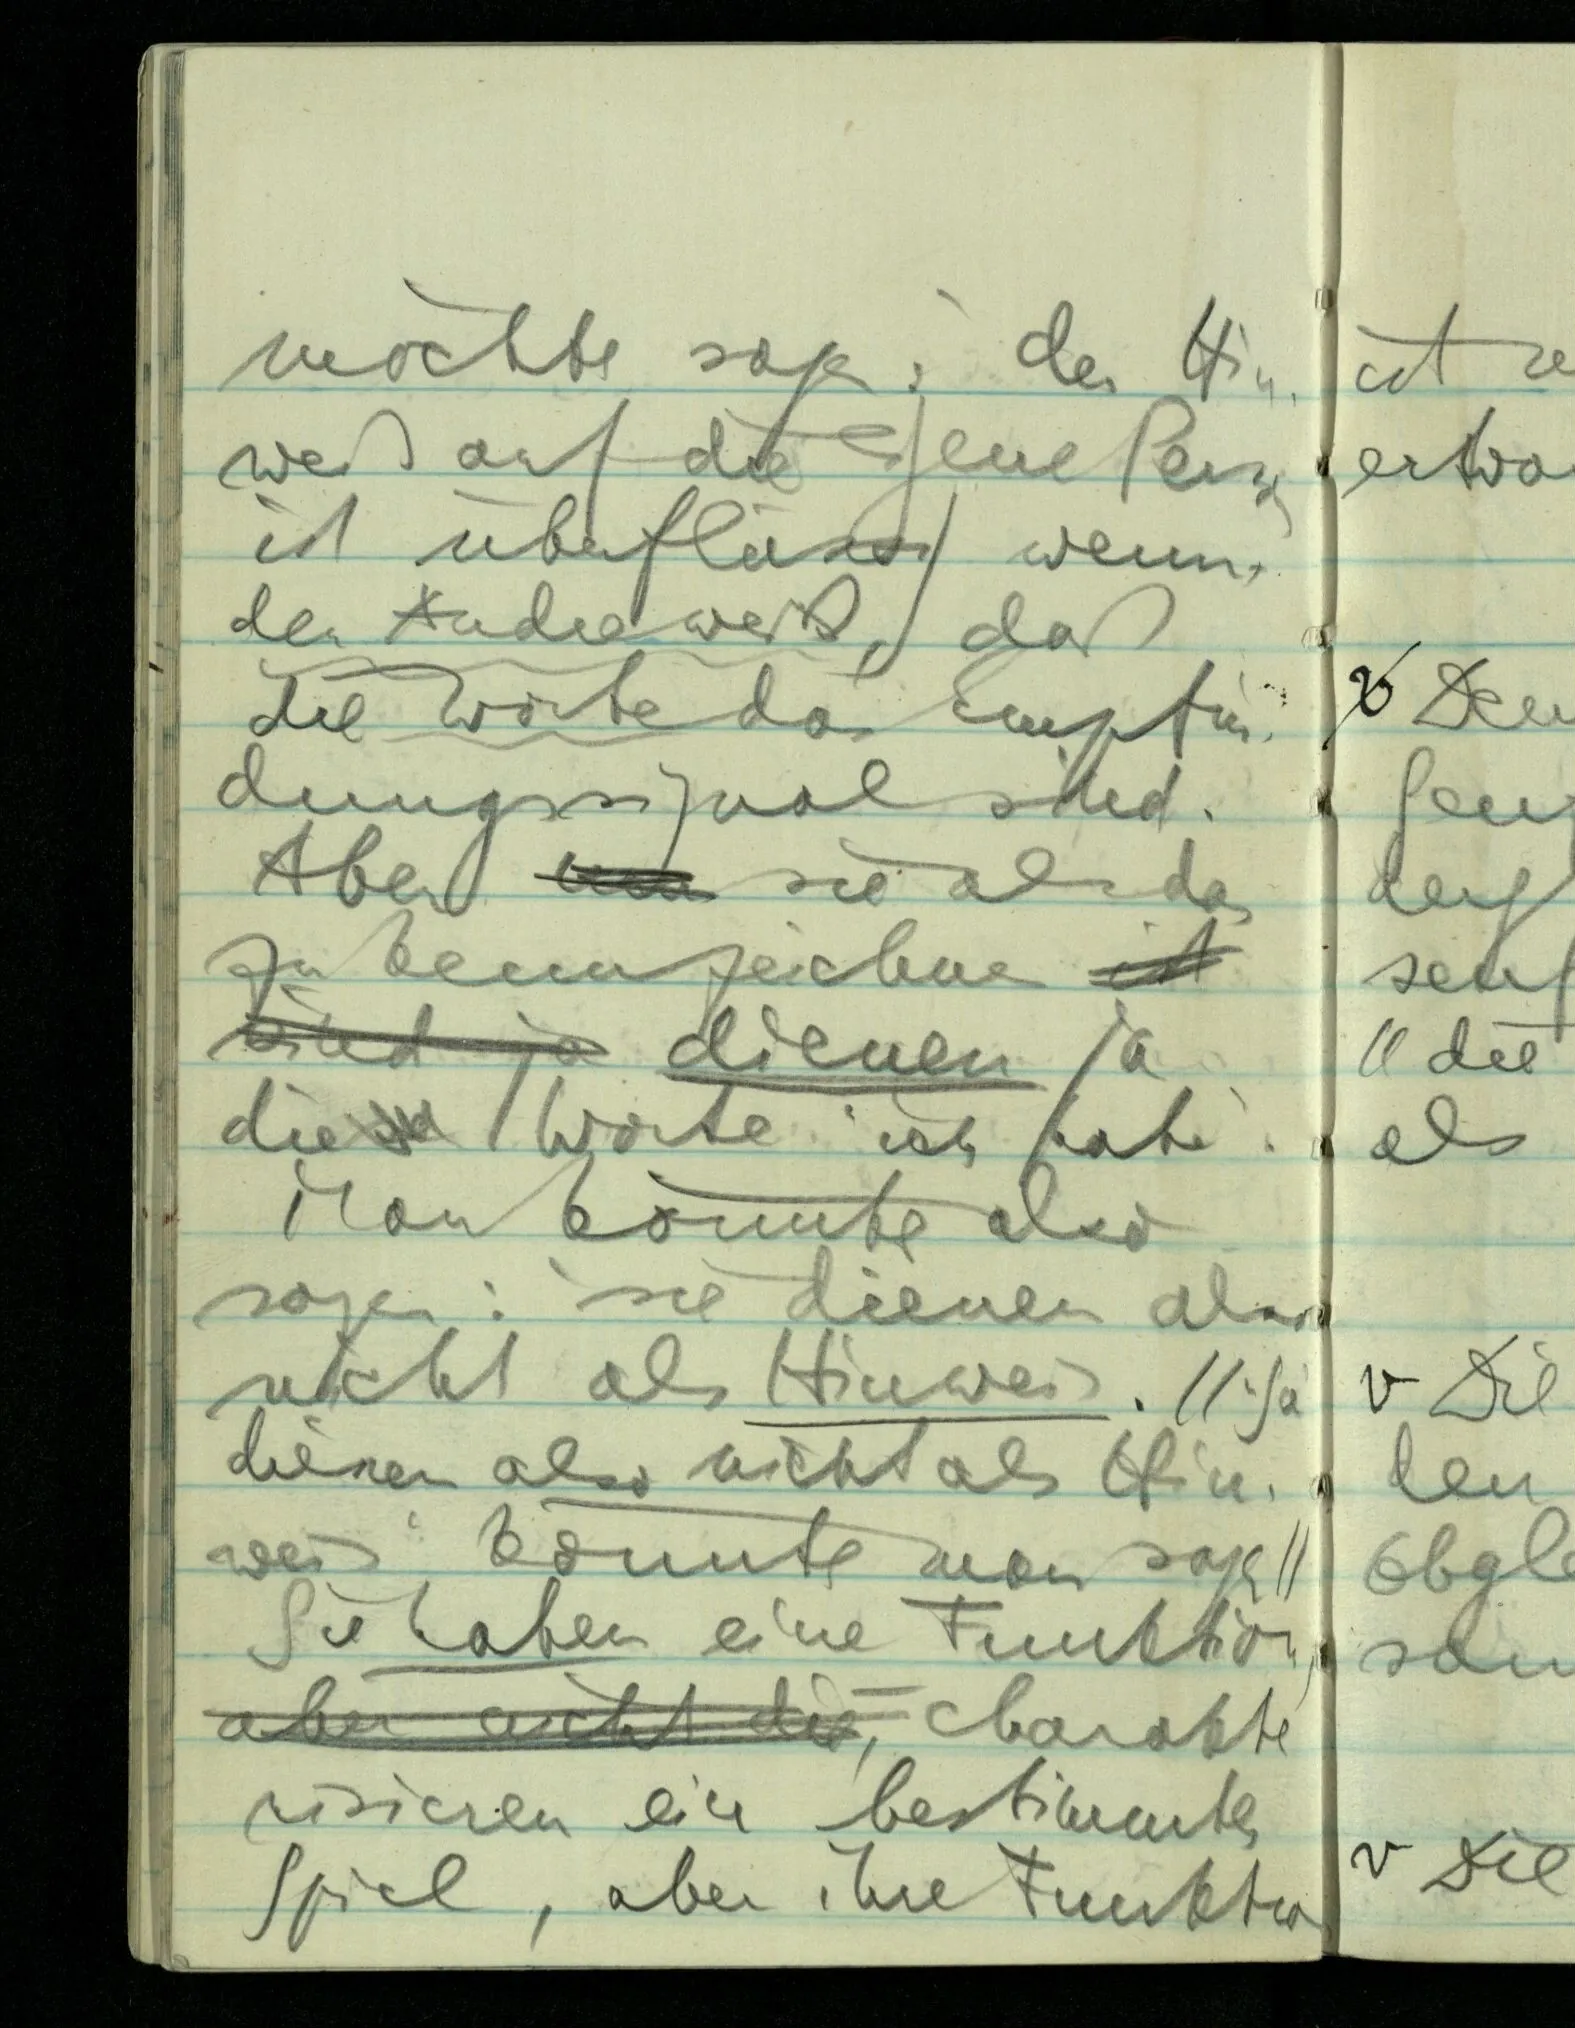 möchte sagen: der Hin-
weis auf die eigene Person
ist überflüssig wenn
der Andre weiß, daß
die Worte das Empfin-
dungssignal sind.
Aber sie als das
zu kennzeichnen ist
sind ja dienen ja
die Worte 'ich habe'.
Man könnte also
sagen: 'sie dienen also
nicht als Hinweis. // 'Sie
dienen also nicht als Hin-
weis' könnte man sagen //
Sie haben eine Funktion
aber nicht die, charakte
risieren ein bestimmtes
Spiel, aber ihre Funktion
ist
v Den
// die
als
v Die
v Die